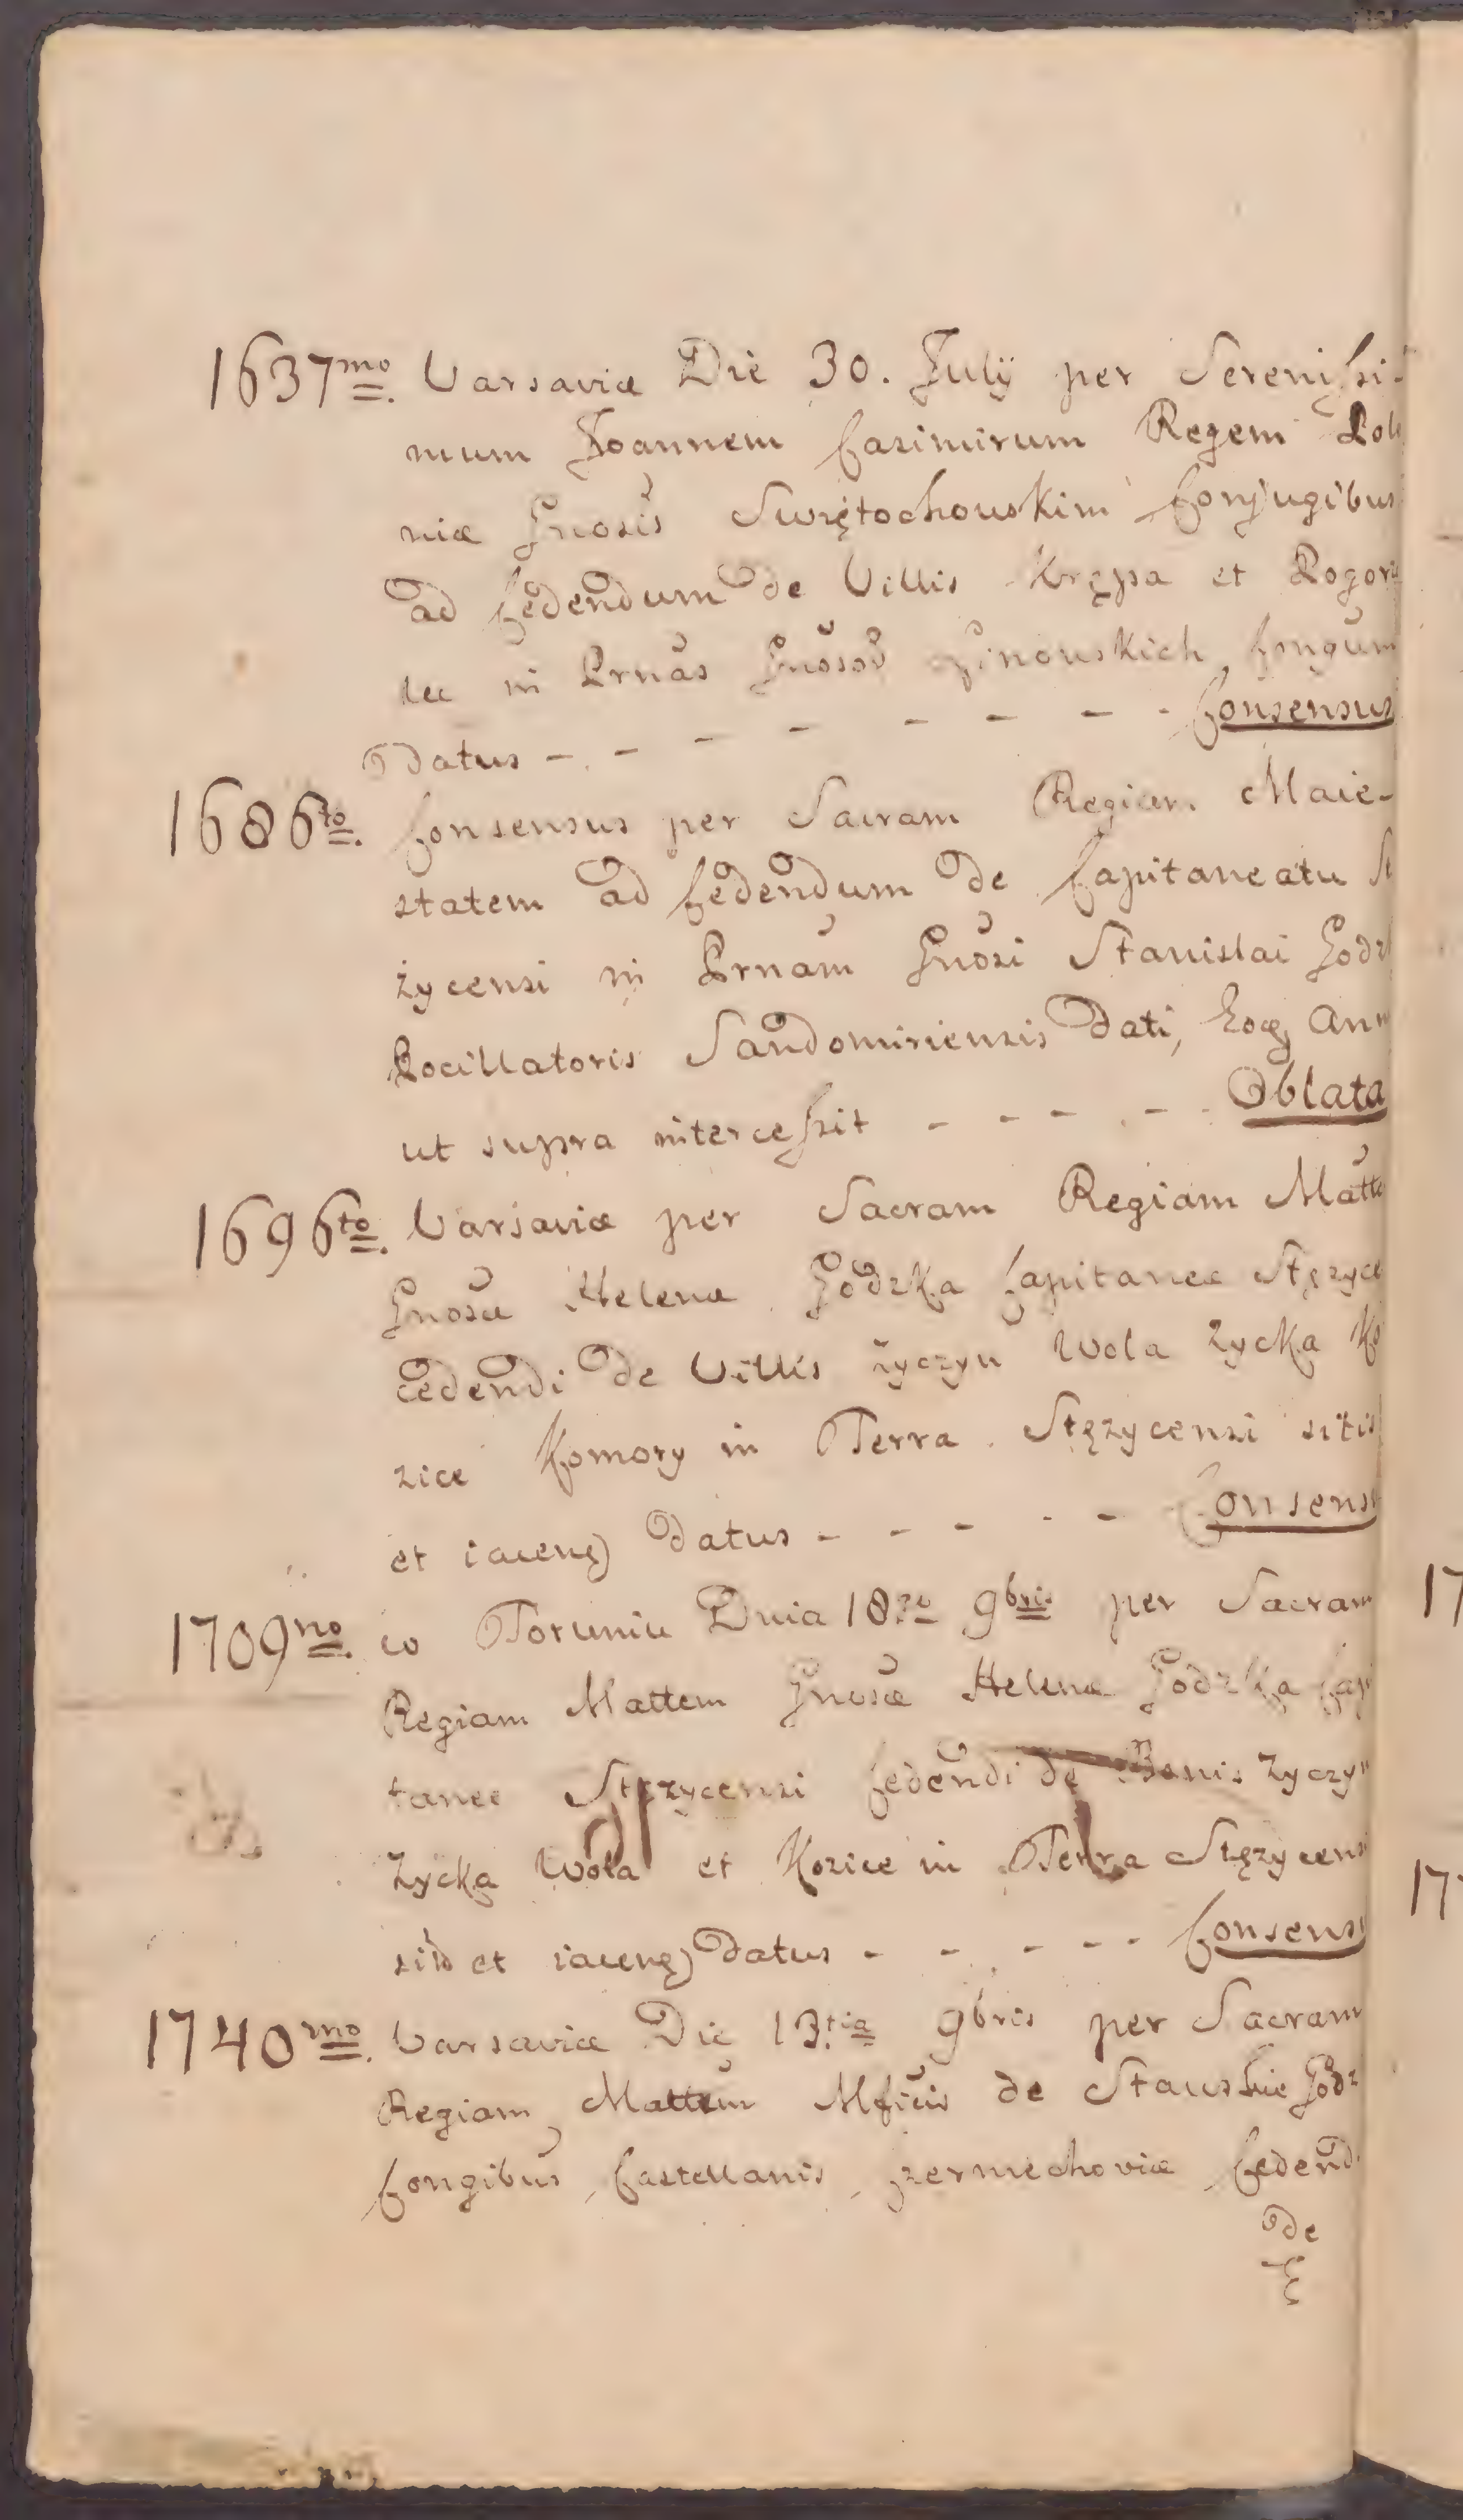 1637mo. Varsaviæ Die 30. July per Serenissi-
mum Joannem Casimirum Regem Polo
niæ Gnosis Swiętochowskim Conjugibus
ad Cedendum de Villis Krępa et Pogorze
lec in Prnas Gnosoū Conjgum
Datus - - - - - - - - Consensus
1686to. Consensus per Sacram Regiam Maie-
statem ad Cedendum de Capitaneatu St
życensi in Prnam Gnosi Stanislai Godz
Pocillatoris Sandomiriensis Dati, Eoq Ann
ut supra intercessit - - - - - Oblata
1696to. Varsaviæ per Sacram Regiam Matte
Gnosæ Helenæ Godzka Capitaneæ Stężyce
cedendi de Villis Życzyn Wola Zycka Ko
zice Komory in Terra Stężycensi sitis
et iacenq Datus - - - - - Consensu
1709no. w Toruniu Dnia 18vo 9bris per Sacram
Regiam Mattem Gnosæ Helenæ Godzka Capi
taneæ Stężycensi Cedendi de Bonis Życzyn
Zycka Wola et Kozice in Terra Stężycensi
sitō et iacenq Datus - - - - - Consensu
1740mo. Varsaviæ Die 13.tia 9bris per Sacram
Regiam Mattem Mficis de Godz
Congibus Castellanis Cedendi
de